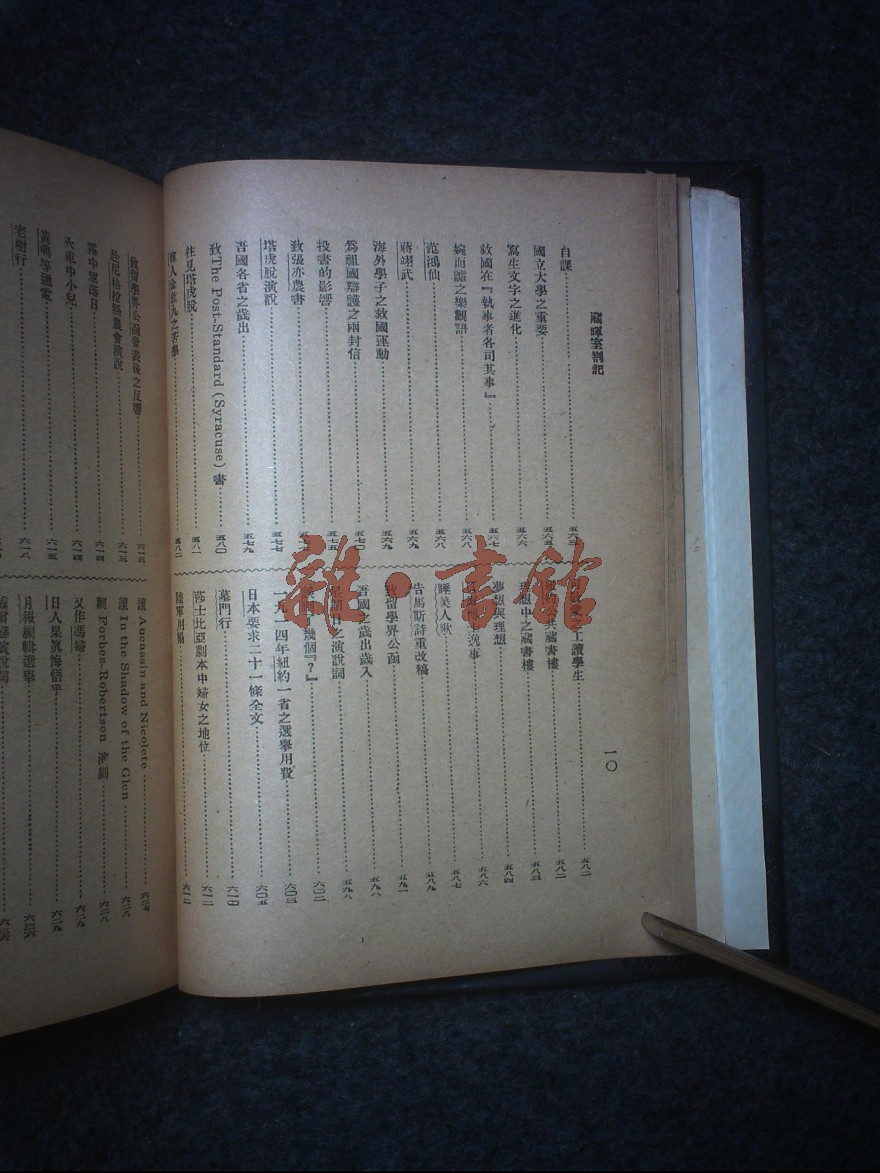 藏暉室劄記
一〇
自課 五六三
國立大學之重要 五六五
寫生文字之進化 五六六
救國在『執事者各司其事』 五六七
婉而謔之樂觀語 五六八
范鴻仙 五六八
蔣翊武 五六九
海外學子之救國運動 五六九
爲祖國辯護之兩封信 五七〇
投書的影響 五七五
致張亦農書
塔虎脫演說 五七七
吾國各省之歲出 五七九
致The Post-Standard (Syracuse) 書 五八〇
往見塔虎脫 五八一
韓人金鉉九之苦學 五八二
工讀學生 五八二
共藏書樓 五八二
理想中之藏書樓 五八三
夢想與理想 五八四
逸事 五八六
睡美人歌 五八七
告馬斯詩重改稿 五八九
致留學界公函 五九一
吾國之歲出歲入 五九六
星期日之演說詞 五九八
幾個『？』 六〇二
一九一四年紐約一省之選舉用費 六〇三
日本要求二十一條全文 六〇五
墓門行 六一〇
莎士比亞劇本中婦女之地位 六一二
陸軍用榻 六一二
致留學界公函發表後之反響 六一三
赴尼格拉縣農會演說 六一三
霧中望落日 六一四
火車中小兒 六一五
黃興等通電 六一六
老樹行 六一八
讀 Aucassin and Nicolete 六二七
讀 In the Shadow of the Glen 六二八
觀 Forbes-Robertson 演劇 六二八
又作馮婦 六二九
日人果眞悔悟乎 六二九
月報編輯選舉
雜·書館